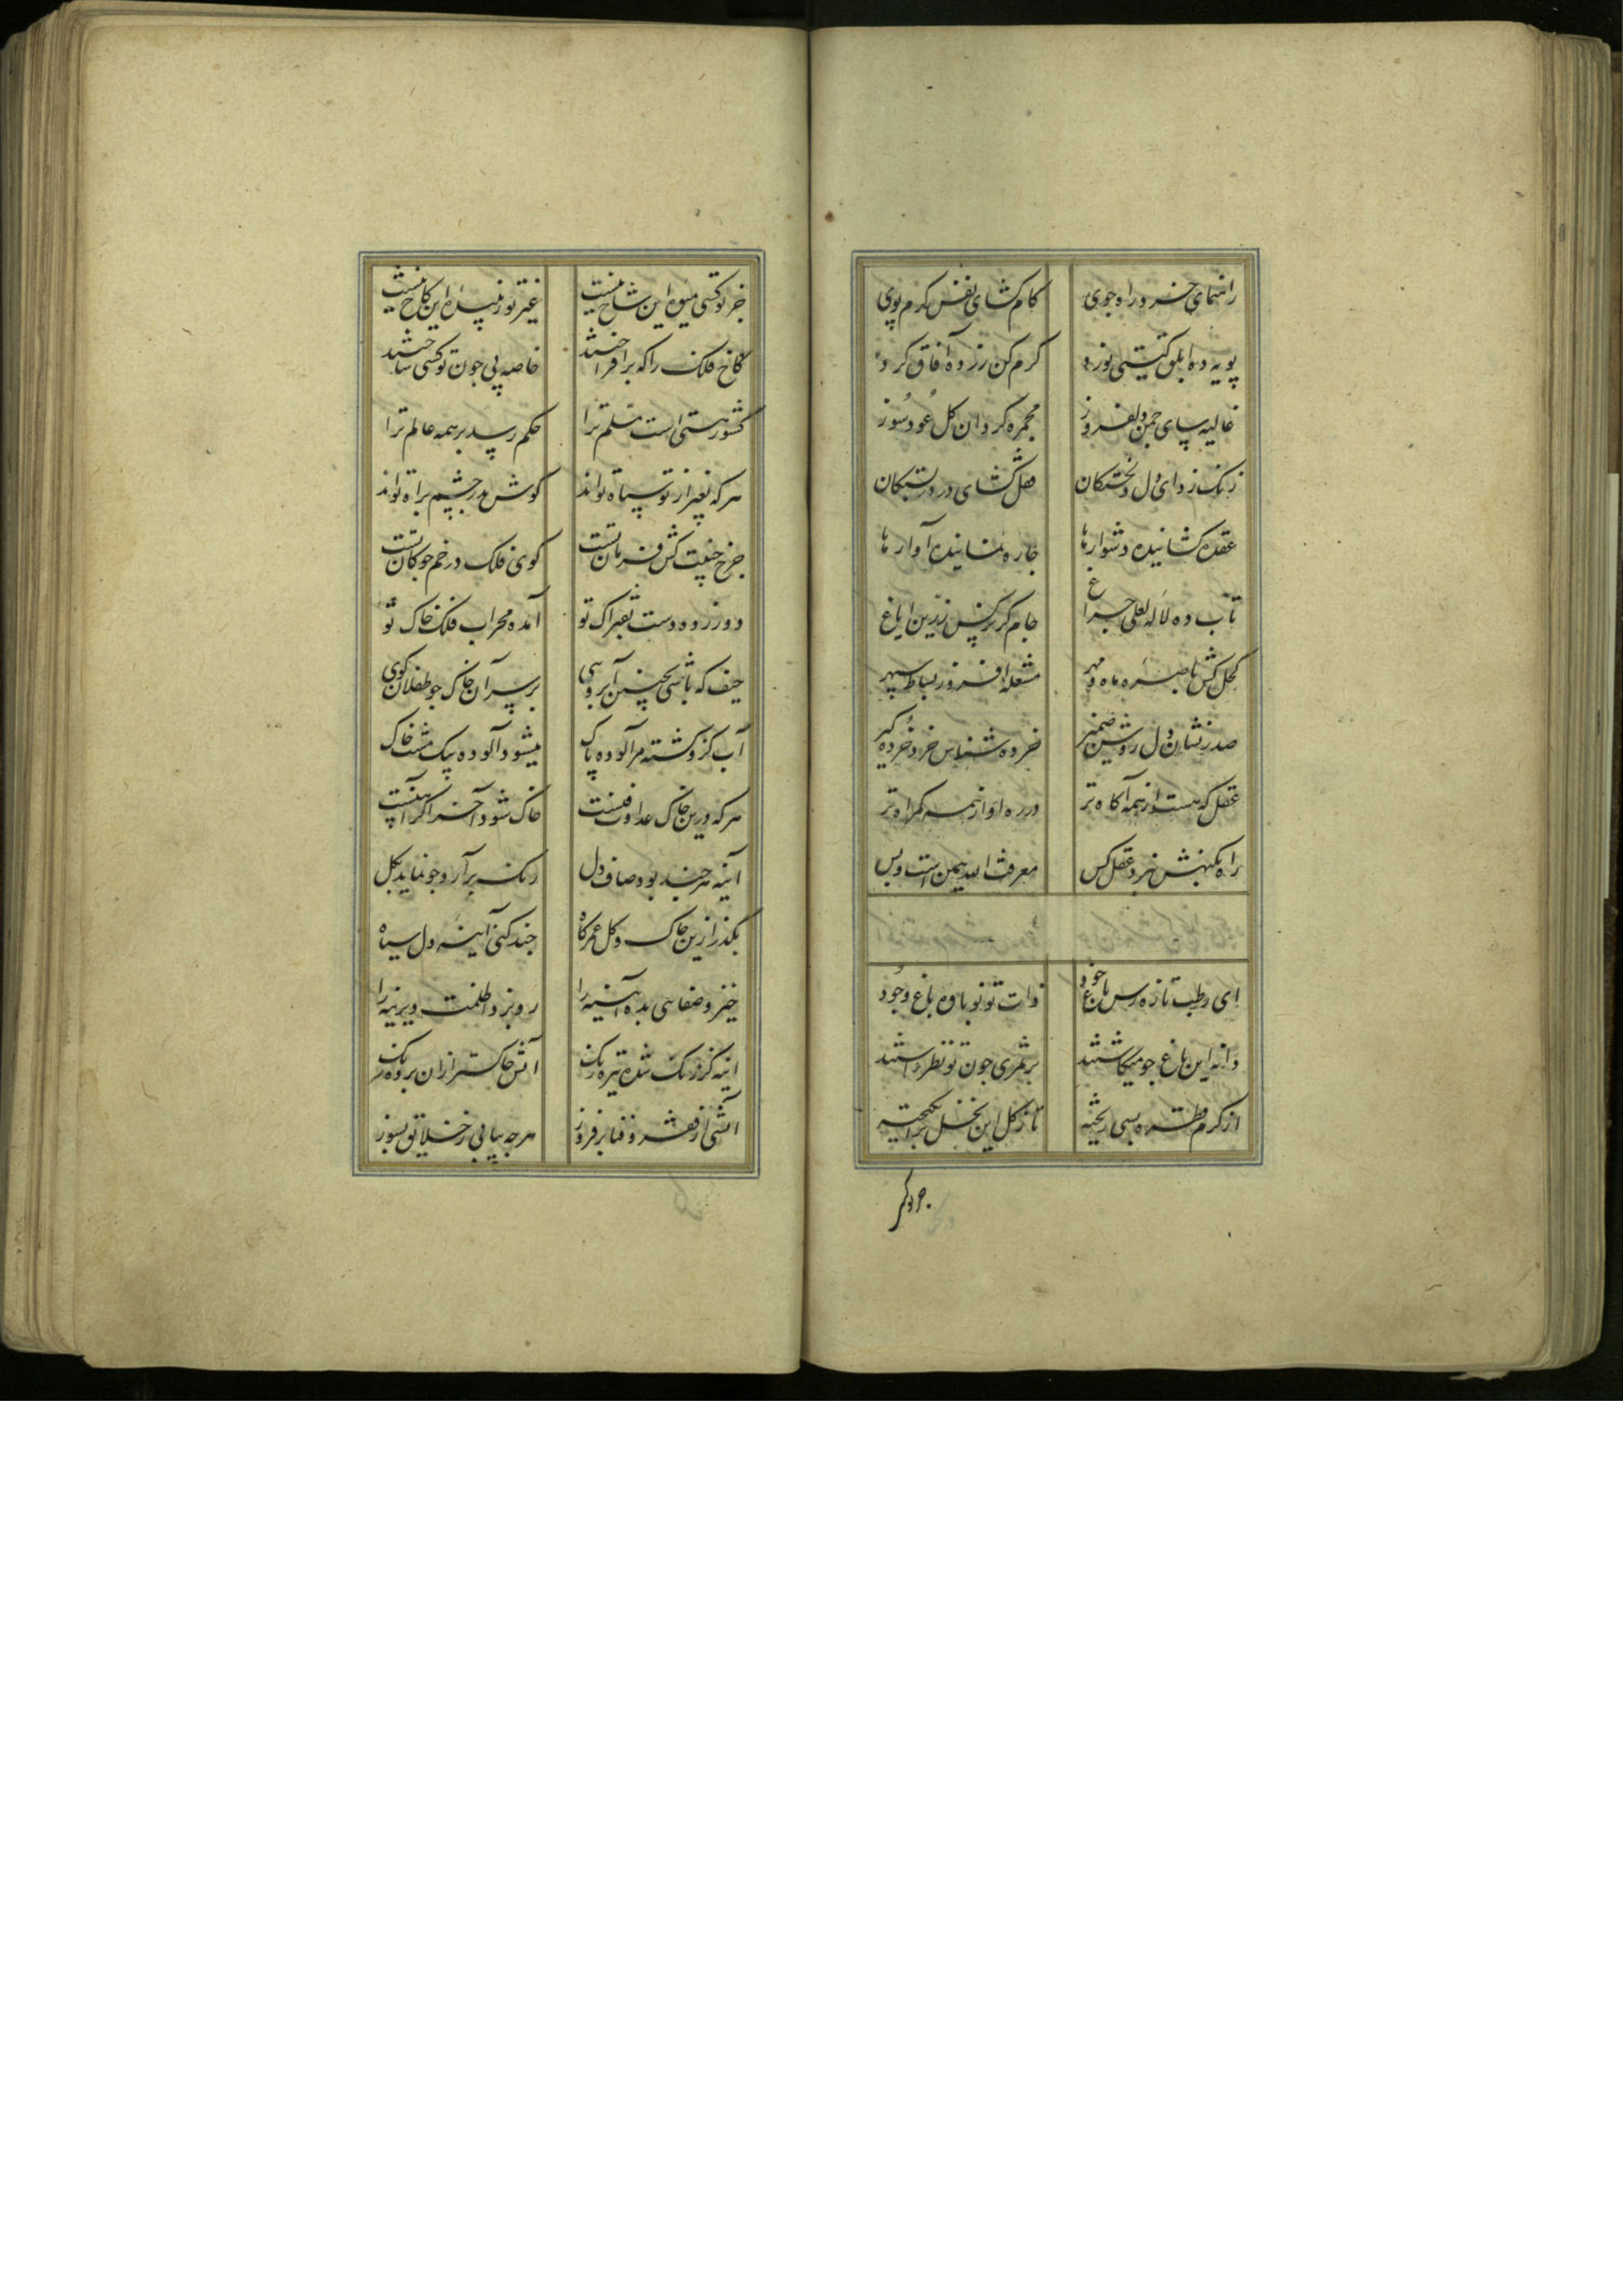 راهنمای خرد راه جوی کام کشای نفس کرم پوی
پویه ده ابلق گیتی نورد کرم کن زرده آفاق کرد
غالیه سای چمن دلفروز مجمره کردان کل عود سوز
زنک زدای دل دلخستکان قفل کشای در دربستکان
عقده کشاینده دشوارها چاره آوارها
تاب ده لاله لعلی چراغ جام کر نرکس زرین ایاغ
کحل کش باصره ماه و مهر مشعله افروز بساط سپهر
صدر نشان دل روشن ضمیر خرده شناس خرد خرده کیر
عقل که هست از همه آکاه تر در ره او از همه کمراه تر
راه بکنهش نبرد عقل کس معرفت الله همین است و بس
ای رطب تازه رس باغ جود ذات تو نوباوه باغ وجود
دانه این باغ چو میکاشتند بر ثمری چون تو نظر داشتند
از کرم قطره بسی ریخته تا ز کل این نخل برانکیخته
جز تو کسی میوه این شاخ نیست غیر تو زیبنده این کاخ نیست
کاخ فلک را که برافراختند خاصه پی چون تو کسی ساختند
کشور هستی است مسلم ترا حکم رسد بر همه عالم ترا
هر که بغیر از تو سپاه تواند کوش بدر چشم براه تواند
چرخ جنیبت کش فرمان تست کوی فلک در خم چوکان تست
دور زده دست بفتراک تو آمده محراب فلک خاک تو
حیف که باشی بچنین آبروی بر سر آن خاک چو طفلان کوی
آب کزو کشته مر آلوده پاک میشود آلوده بیک مشت خاک
هر که درین خاک عداوت فنست خاک شود آخر اگر آهنست
آینه هر چند بود صاف دل زنک برآرد چو نماید بکل
بکذر ازین خاک و کل عمر کاه چند کنی آینه دل سیاه
خیز و صفایی بده آیینه را رو بزد اظلمت دیرینه را
آینه کز زنک شده تیره رنک آتش خاکستر ازان برده زنک
آتشی از فقر و فنا بر فروز هرچه بیابی ز خلایق بسوز
جز تو کسی